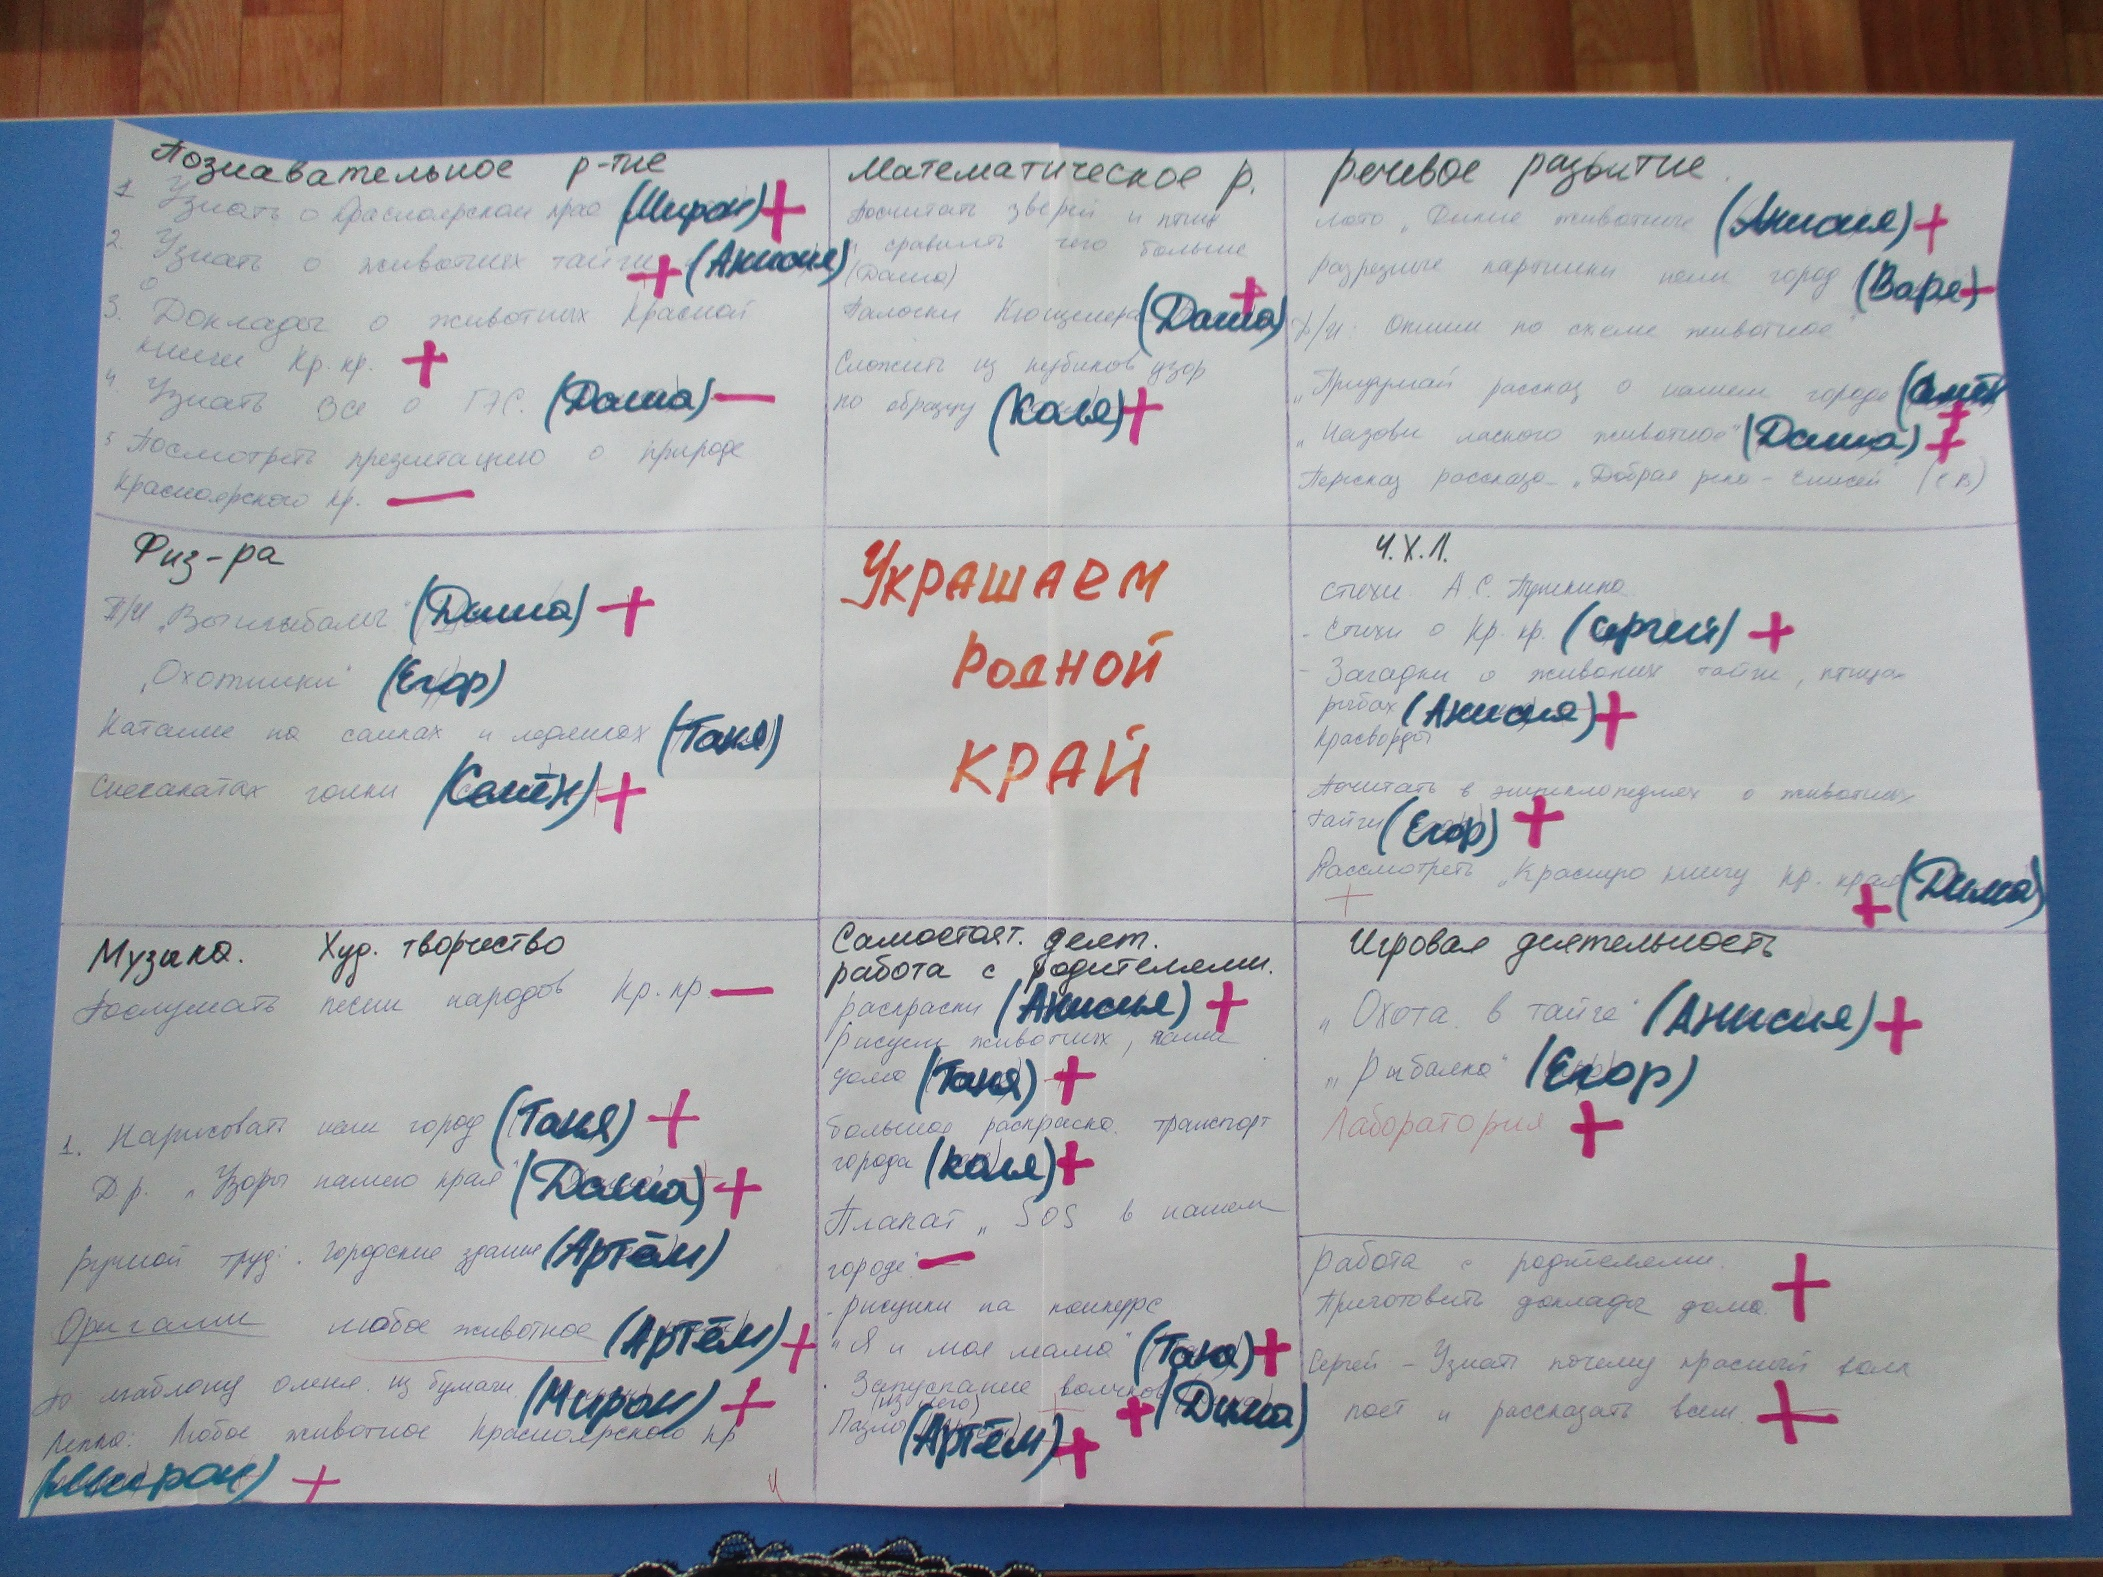 Познавательное р-тие
1. Узнать о Красноярском крае (Мирон) +
2. Узнать о животных тайги + (Анисия)
3. Доклады о животных Красной
книги Кр. кр. +
4 Узнать все о ГЭС. (Даша) —
5 Посмотреть презентацию о природе
Красноярского кр. —
Математическое р.
Посчитать зверей и птиц
и сравнить чего больше
(Даша)
Палочки Кюизенера (Даша) +
Сложить из кубиков узор
по образцу (Коля) +
Речевое развитие.
Лото „Дикие животные (Анисия) +
Разрезные картинки город (Варя) +
Д/и: Опиши по схеме животное"
„Придумай рассказ о нашем городе (Семён +
„Назови ласково животное" (Даша) +
Пересказ рассказа „Добрая река - Енисей" (СВ)
Физ-ра
П/и „Вышибалы" (Даша) +
„Охотники" (Егор)
Катание на санках и ледянках (Таня)
гонки (Семён) +
Украшаем
родной
край
Ч.Х.Л.
Стихи А.С. Пушкина
- Стихи о Кр. кр. (Сергей) +
- Загадки о живоных тайги, птицах
рыбах (Анисия) +
Красворды
Почитать в энциклопедиях о животных
тайги (Егор) +
Рассмотреть „Красную книгу Кр. края (Дима)
+ +
Музыка. Худ. творчество
Послушать песни народов Кр. кр —
1. Нарисовать наш город (Таня) +
Д.р. „Узоры нашего края" (Даша) +
Ручной труд: городские здания (Артём)
Оригами любое животное (Артём) +
По шаблону оленя из бумаги. (Мирон) +
Лепка: Любое животное Красноярского кр
(Мирон) +
Самостоят. деят.
работа с родителями.
раскраски (Анисия) +
Рисуем животных, наши
дома (Таня) +
большое раскраска транспорт
города (Коля) +
Плакат „SOS в нашем
городе" —
- рисунки на конкурс
"Я и моя мама" (Таня) +
Запускание волчков + (Дима)
(из лего)
Пазлы (Артём) +
Игровая деятельность
„Охота в тайге" (Анисия) +
„Рыбалка" (Егор)
Лаборатория +
Работа с родителями. +
Приготовить доклады дома.
Сергей – Узнать почему красный волк
поет и рассказать всем. +